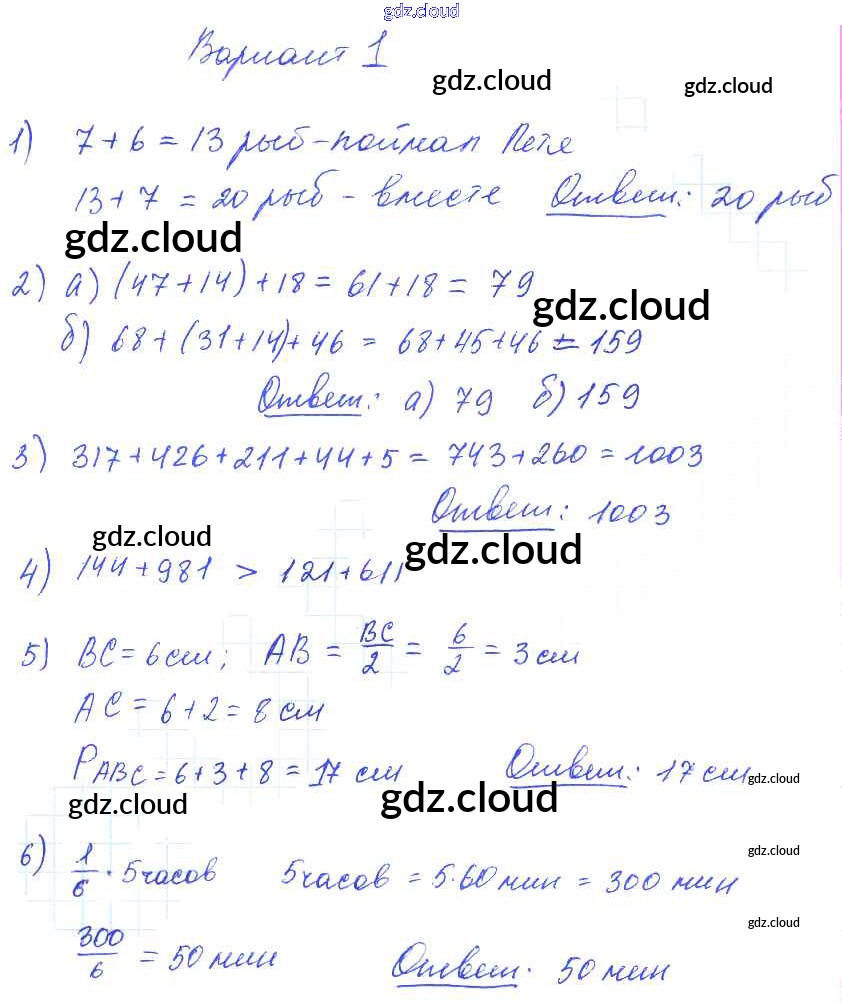 gdz.cloud
Вариант 1
gdz.cloud gdz.cloud
1) 7 + 6 = 13 рыб - поймал Петя
13 + 7 = 20 рыб - вместе Ответ: 20 рыб
gdz.cloud
2) а) (47+14)+18 = 61+18 = 79
gdz.cloud
б) 68+(31+14)+46 = 68+45+46 = 159
Ответ: а) 79 б) 159
3) 317+426+211+44+5 = 743+260 = 1003
Ответ: 1003
gdz.cloud gdz.cloud
4) 144+981 > 121+611
5) BC = 6 см; AB = BC/2 = 6/2 = 3 см
AC = 6+2 = 8 см
P ABC = 6+3+8 = 17 см Ответ: 17 см
gdz.cloud
gdz.cloud gdz.cloud
6) 1/6 · 5 часов 5 часов = 5·60 мин = 300 мин
gdz.cloud
gdz.cloud
300/6 = 50 мин Ответ: 50 мин